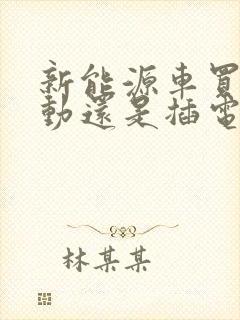 新能源車買
動還是插電
林某某